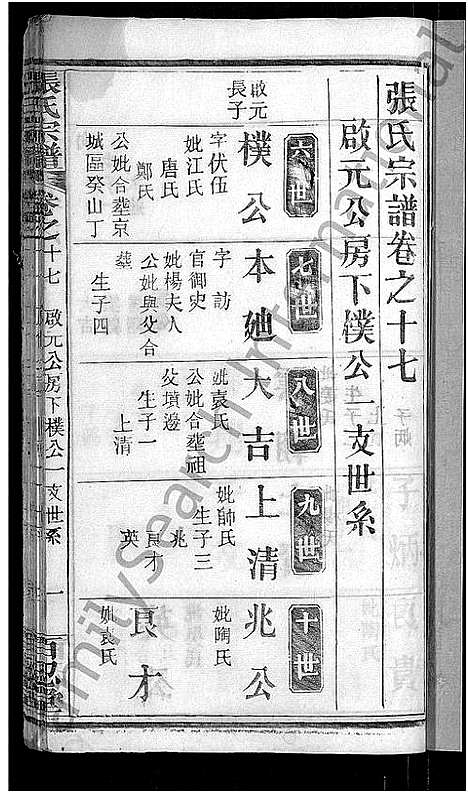 張氏宗譜卷之十七
啟元公房下樸公一支世系
六世
啟元
長子
樸公
字伏伍
妣江氏
唐氏
鄭氏
公妣合塟京
城區癸山丁
七世
本
字訪
官御史
妣楊夫人
公妣與父合
塟
生子四
八世
大吉
妣袁氏
公妣合塟祖
父墳邊
生子一
上清
九世
上清
妣師氏
生子三
兆
良才
英
十世
兆公
妣陶氏
良才
妣袁氏
張氏宗譜
卷之十七
啟元公房下樸公一支世系
一
百忍堂
FamilySearch International